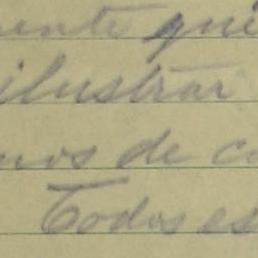 ente qui
ilustrar
nos de co
Todos es